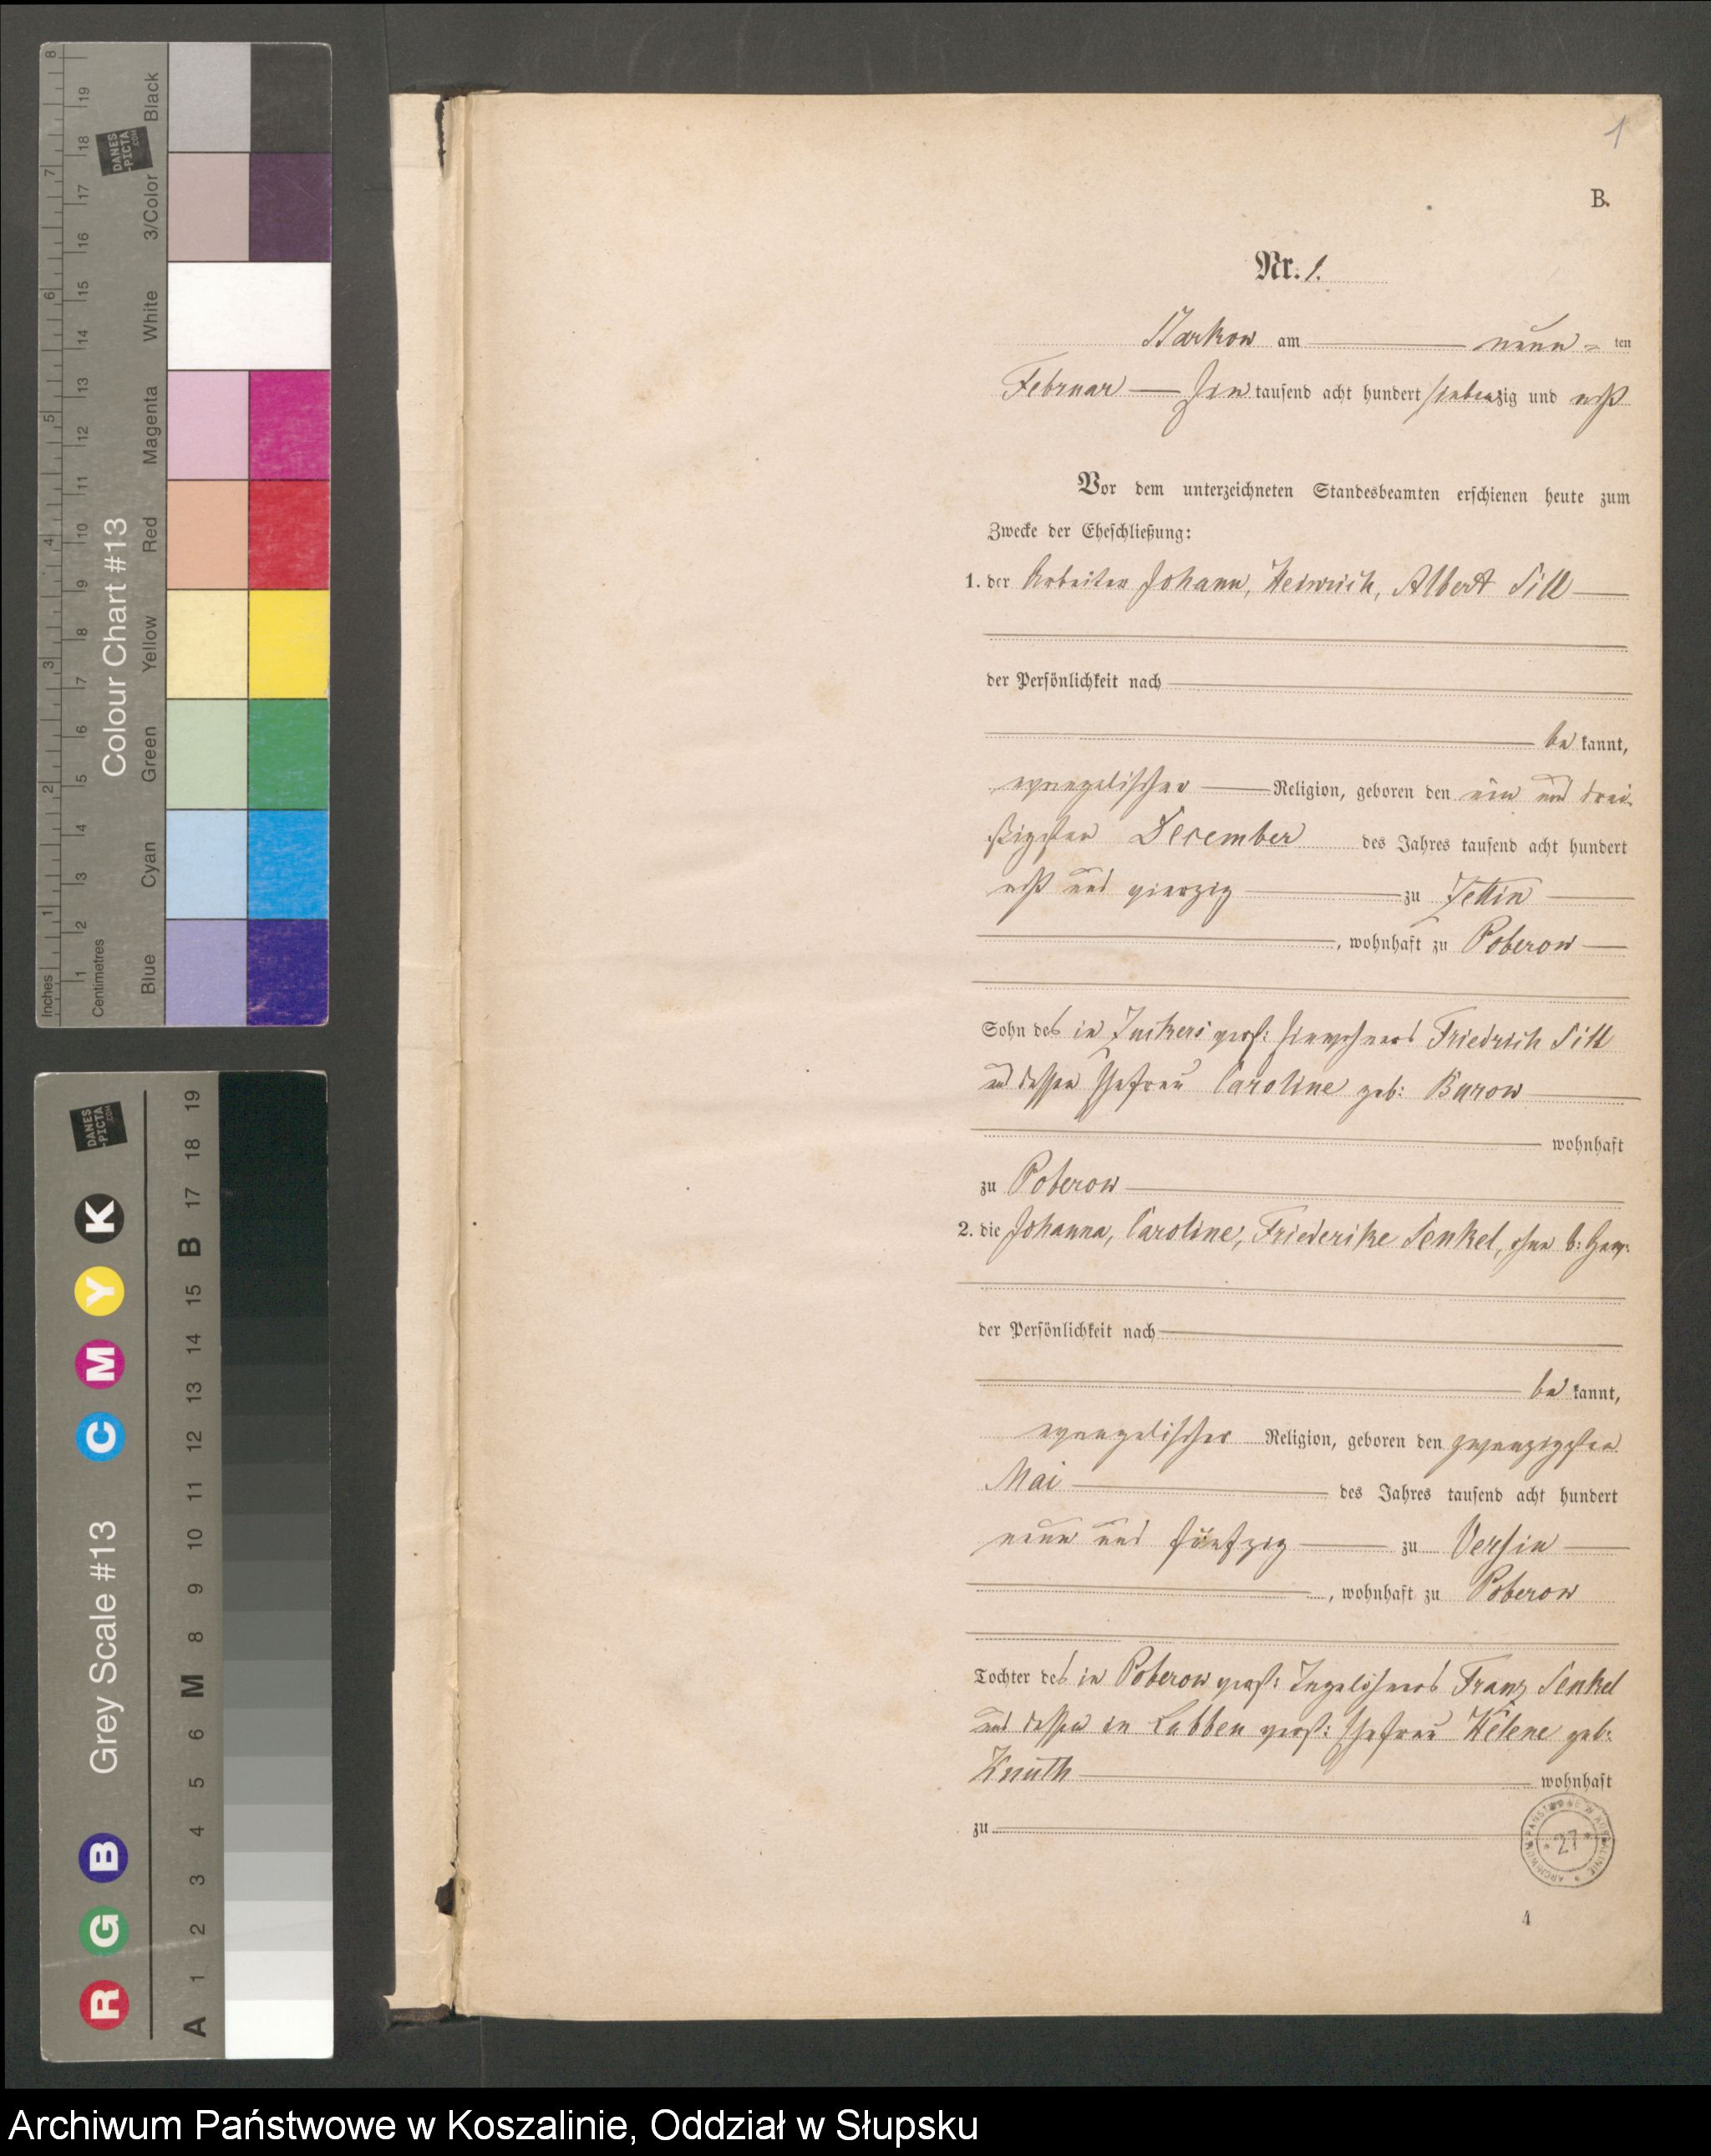 1
B.
Nr. 1.
Barkow am neun= ten
Februar Ein tausend acht hundert siebenzig und acht
Vor dem unterzeichneten Standesbeamten erschienen heute zum
Zwecke der Eheschließung:
1. der Arbeiter Johann, Heinrich, Albert Sill
der Persönlichkeit nach
be kannt,
evangelischer Religion, geboren den ein und drei-
ßigsten December des Jahres tausend acht hundert
acht und vierzig zu Zettin
, wohnhaft zu Poberow
Sohn des in Zuckers verst: Einwohners Friedrich Sill
und dessen Ehefrau Caroline geb: Burow
wohnhaft
zu Poberow
2. die Johanna, Caroline, Friederike Senkel, ohne b: Gew:
der Persönlichkeit nach
be kannt,
evangelischer Religion, geboren den zwanzigsten
Mai des Jahres tausend acht hundert
neun und fünfzig zu Versin
, wohnhaft zu Poberow
Tochter des in Poberow verst: Tagelöhners Franz Senkel
und dessen in Lubben verst: Ehefrau Helene geb:
Knuth wohnhaft
zu
ARCHIWUM PAŃSTWOWE W KOSZALINIE
27
4
Inches
1 2 3 4 5 6 7 8
Centimetres
1 2 3 4 5 6 7 8 9 10 11 12 13 14 15 16 17 18 19
Colour Chart #13
Blue Cyan Green Yellow Red Magenta White 3/Color Black
DANES
-PICTA
.COM
Grey Scale #13
R G B C M Y K
A 1 2 3 4 5 6 M 8 9 10 11 12 13 14 15 B 17 18 19
DANES
-PICTA
.COM
Archiwum Państwowe w Koszalinie, Oddział w Słupsku